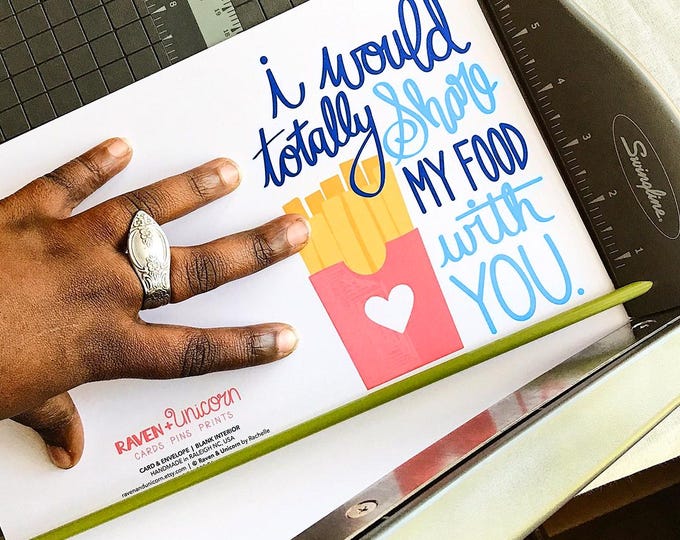 i would
totally Share
MY FOOD
with
YOU.
RAVEN + UNICORN
CARDS PINS PRINTS
CARD & ENVELOPE | BLANK INTERIOR
HANDMADE in RALEIGH NC, USA
ravenandunicorn.etsy.com | © Raven & Unicorn by Rachelle
Swingline
5
4